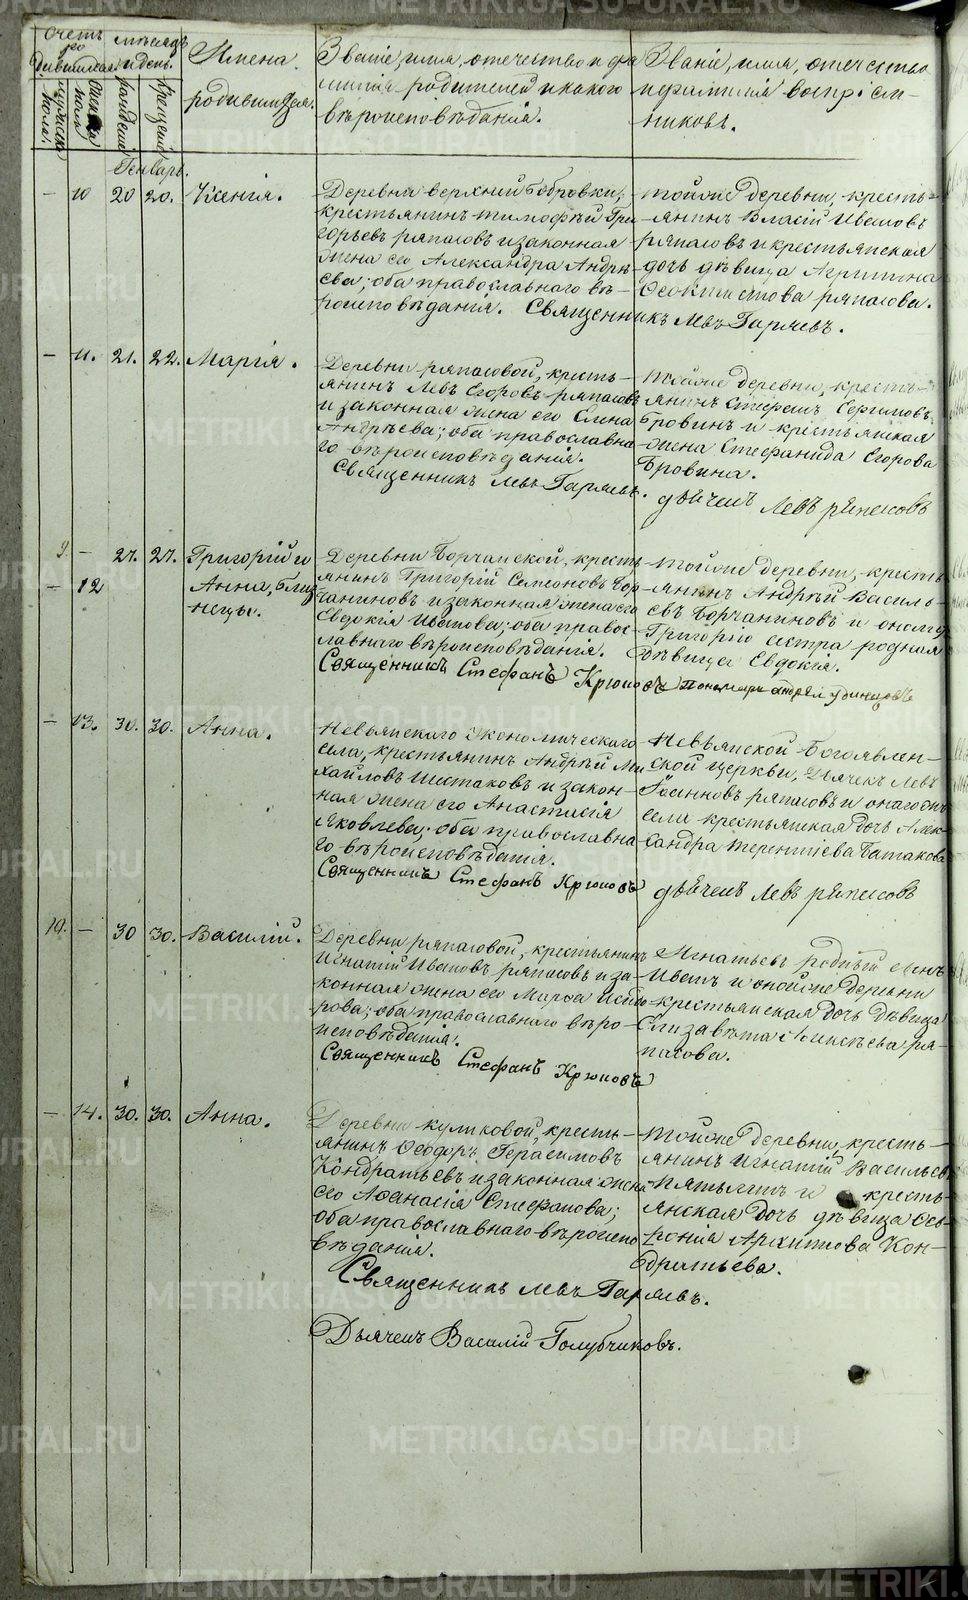 Счетъ родившихся
мѣсяцъ и день.
Имена родившихся.
Званіе, имя, отечество и фа
милія родителей и какого
вѣроисповѣданія.
Званіе, имя, отечество
и фамилія воспріем-
никовъ.
мужеска пола.
женска пола
рожденія
крещенія
Генварь.
— 10 20 20. Ксенія.
Деревни верхней Бобровки,
крестьянинъ Тимофѣй Гри
горьевъ Ряпасовъ и законная
жена его Александра Андрѣ
ева; оба православнаго вѣ-
роисповѣданія. Священникъ Левъ Гаряевъ.
тойже деревни, кресть-
янинъ Власій Ивановъ
Ряпасовъ и крестьянская
дочь дѣвица Агрипина
Ряпасова.
— 11. 21. 22. Марія.
Деревни Ряпасовой, кресть-
янинъ Левъ Егоровъ Ряпасовъ
и законная жена его Елена
Андрѣева; оба православна
го вѣроисповѣданія.
Священникъ Левъ Гаряевъ.
тойже деревни, кресть-
янинъ Стефанъ
Бровинъ и крестьянская
жена Стефанида Егорова
Бровина.
дьячекъ Левъ Ряпасовъ
9 — 27. 27. Григорій и
— 12 Анна, близ
нецы.
Деревни Борчанской, кресть
янинъ Григорій Семеновъ Бор
чаниновъ и законная жена его
Евдокія Иванова; оба право-
славнаго вѣроисповѣданія.
Священникъ Стефанъ Крюковъ Пономарь Андрей
тойже деревни, кресть
янинъ Андрѣй Василь-
евъ Борчаниновъ и оному
Григорію сестра родная
дѣвица Евдокія.
— 13. 30. 30. Анна.
Невьянскаго экономическаго
села, крестьянинъ Андрѣй Ми
хайловъ Шестаковъ и закон-
ная жена его Анастасія
Яковлева; оба православна
го вѣроисповѣданія.
Священникъ Стефанъ Крюковъ
Невьянской Богоявлен-
ской церкви, Дьячекъ Левъ
Іоанновъ Ряпасовъ и онагожъ
села крестьянская дочь Алек-
сандра Терентіева
дьячекъ Левъ Ряпасовъ
10. — 30 30. Василій.
Деревни Ряпасовой, крестьянинъ
Игнатій Ивановъ Ряпасовъ и за-
конная жена его Марѳа Исидо
рова; оба православнаго вѣро-
исповѣданія.
Священникъ Стефанъ Крюковъ
Игнатьевъ родный сынъ
Иванъ и онойже деревни
крестьянская дочь дѣвица
Елизавѣта Алексѣева Ря-
пасова.
— 14. 30. 30. Анна.
Деревни Куликовой, кресть-
янинъ Ѳеодоръ Герасимовъ
Кондратьевъ и законная жена
его Аѳанасія Стефанова;
оба православнаго вѣроиспо
вѣданія.
Священникъ Левъ Гаряевъ.
тойже деревни, кресть-
янинъ Игнатій Васильевъ
и кресть-
янская дочь дѣвица Фев-
ронія Архипова Кон-
дратьева.
Дьячекъ Василій Голубчиковъ.
METRIKI.GASO-URAL.RU